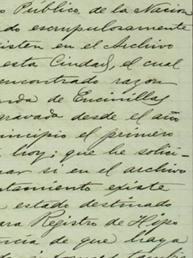 o Público de la Nación
do escrupulosamente
isten en el Archivo
esta Ciudad, el cual
encontrado razon
nda de Encinillas
gravada desde el año
incipio el primero
hoy; que he solici-
nar si en el archivo
ntamiento existe
estado destinado
ara Registro de Hipo
ncia de que haya